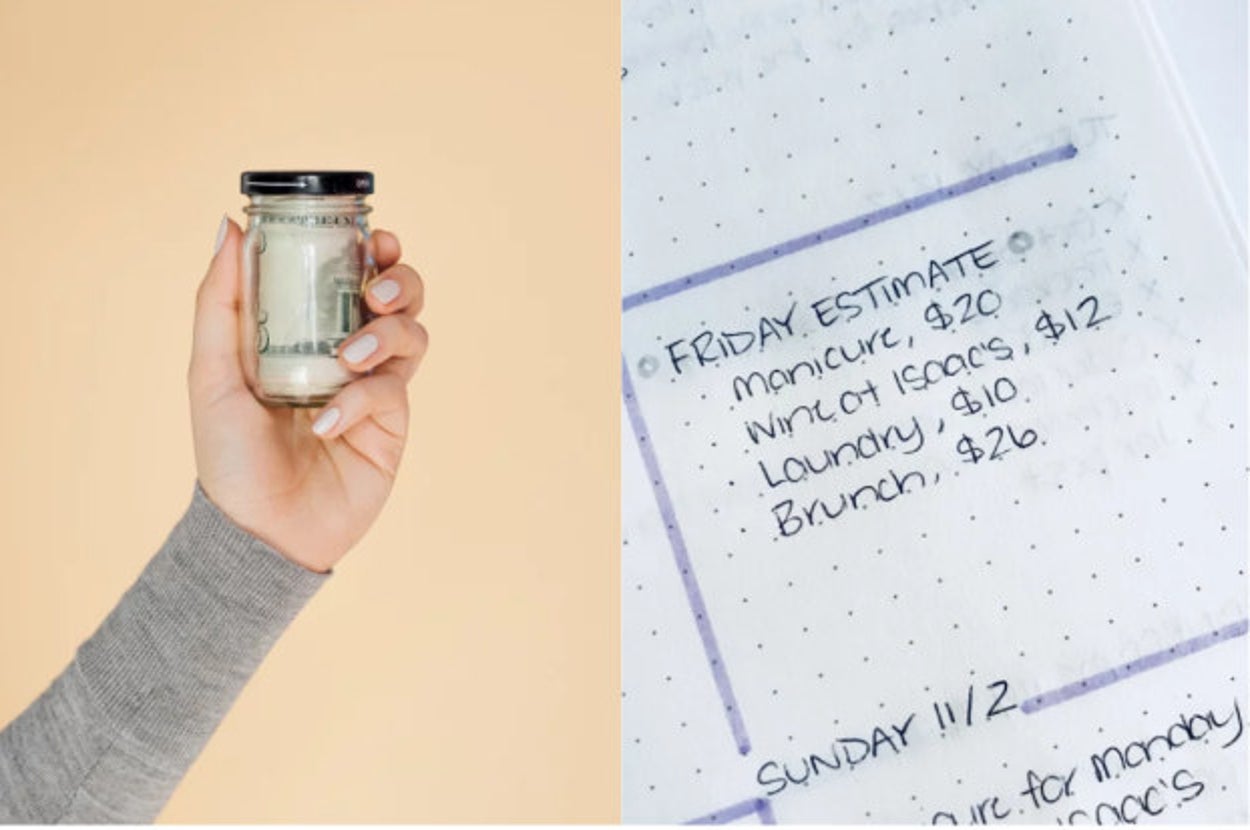 FRIDAY ESTIMATE
Manicure, $20
Wine at Isaac's, $12
Laundry, $10
Brunch, $26
SUNDAY 11/2
for Monday
Isaac's